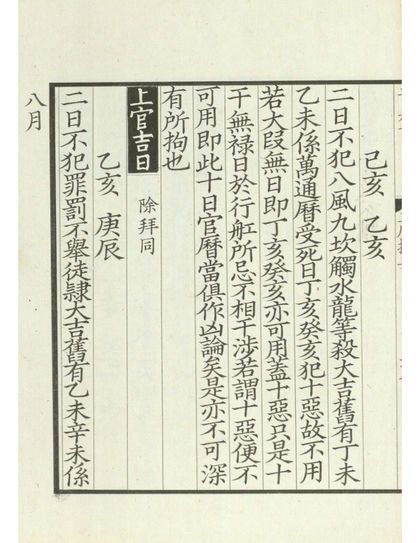 己亥 乙亥
二日不犯八風九坎觸水龍等殺大吉舊有丁未
乙未係萬通曆受死日丁亥癸亥犯十惡故不用
若大叚無日即丁亥癸亥亦可用蓋十惡只是十
干無禄日於行舡所忌不相干涉若謂十惡便不
可用即此十日官曆當俱作凶論矣是亦不可深
有所拘也
上官吉日 除拜同
乙亥 庚辰
二日不犯罪罰不舉徒隷大吉舊有乙未辛未係
八月